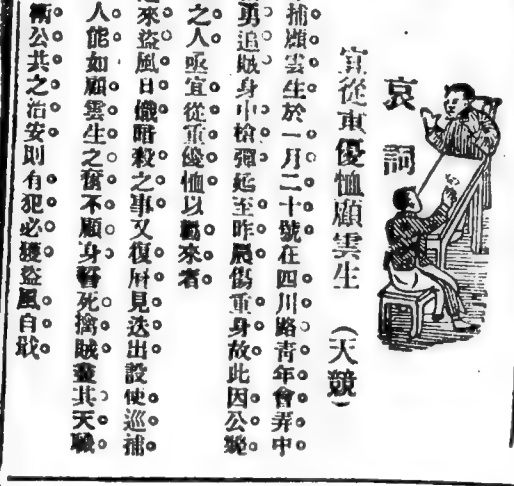 哀詞
宜從重優恤顧雲生 (天競)
捕顧雲生於一月二十號在四川路靑年會弄中
勇追賊身中槍彈延至昨晨傷重身故此因公斃
之人亟宜從重優恤以勵來者
來盜風日熾暗殺之事又復屑見迭出設使巡捕
人能如顧雲生之奮不顧身誓死擒賊盡其天職
衛公共之治安則有犯必獲盜風自戢